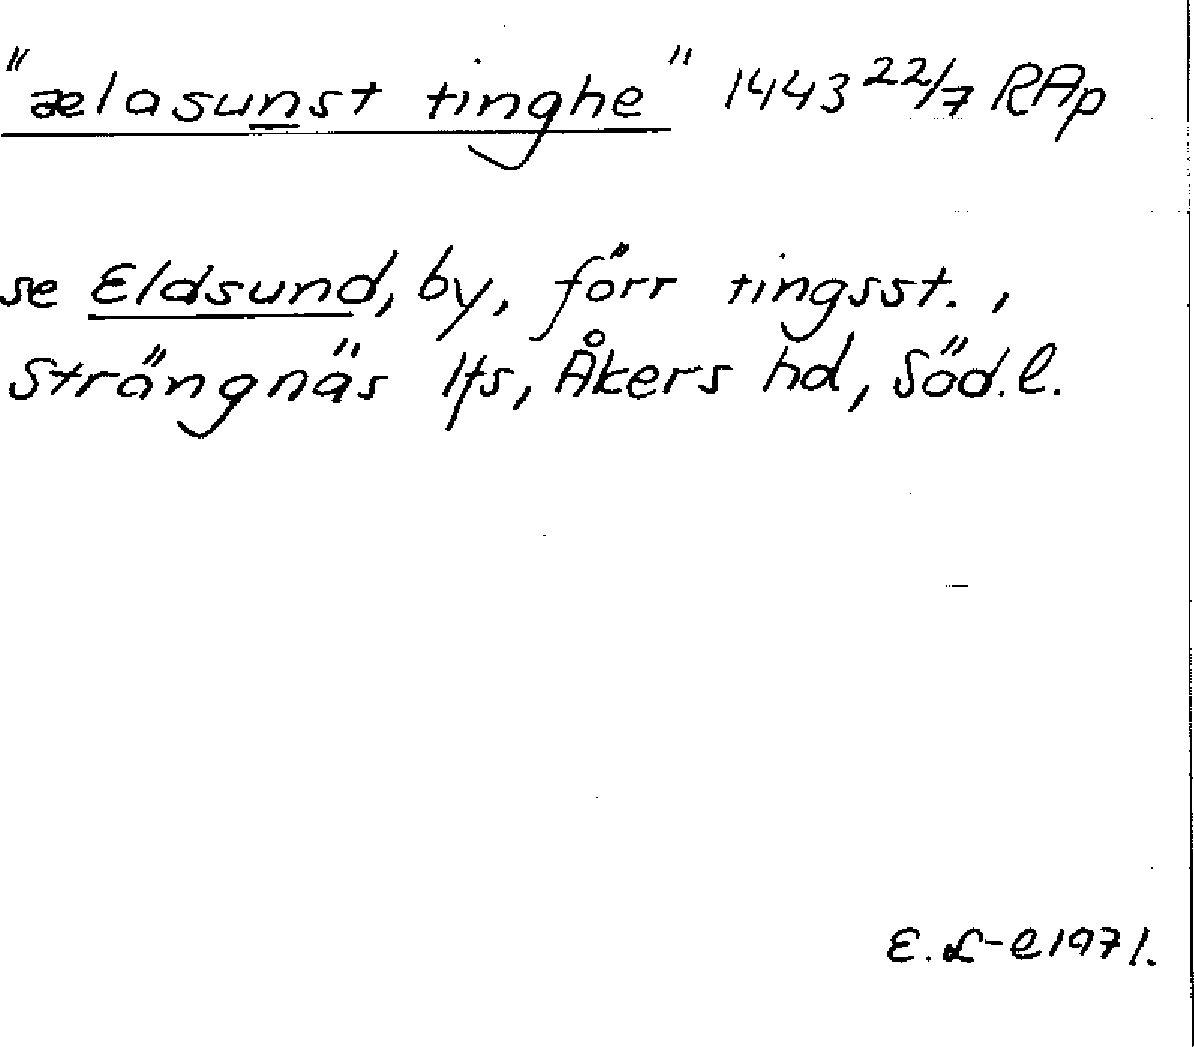 "ælasunst tinghe" 1443 22/7 RAp
se Eldsund, by, förr tingsst.,
Strängnäs lfs, Åkers hd, Söd.l.
E. L-e 1971.